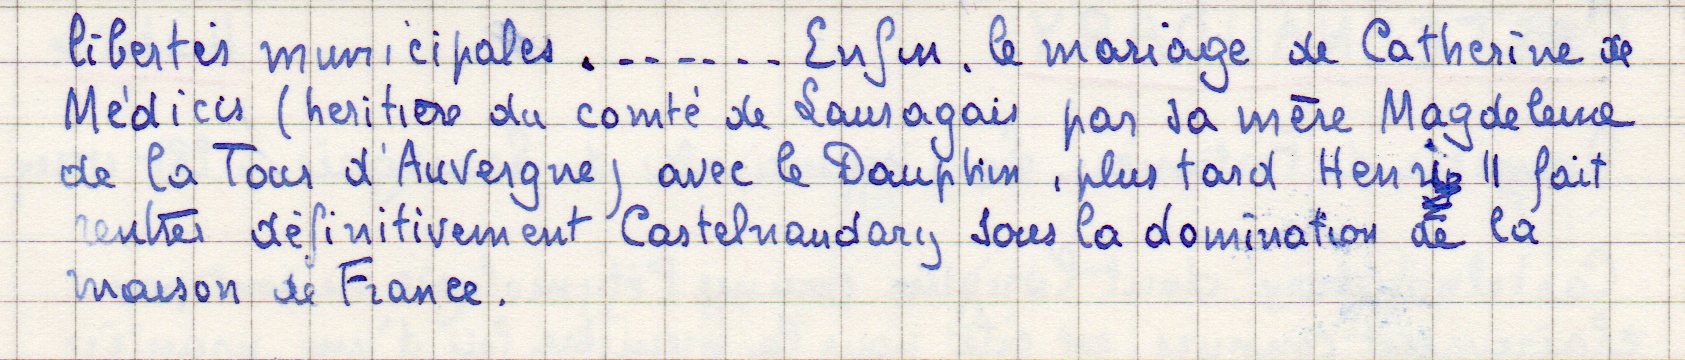 libertés municipales . ------ Enfin, le mariage de Catherine de
Médicis (heritière du comté de Lauragais par sa mère Magdeleine
de la Tour d'Auvergne) avec le Dauphin, plus tard Henri II fait
rentrer définitivement Castelnaudary sous la domination de la
maison de France.